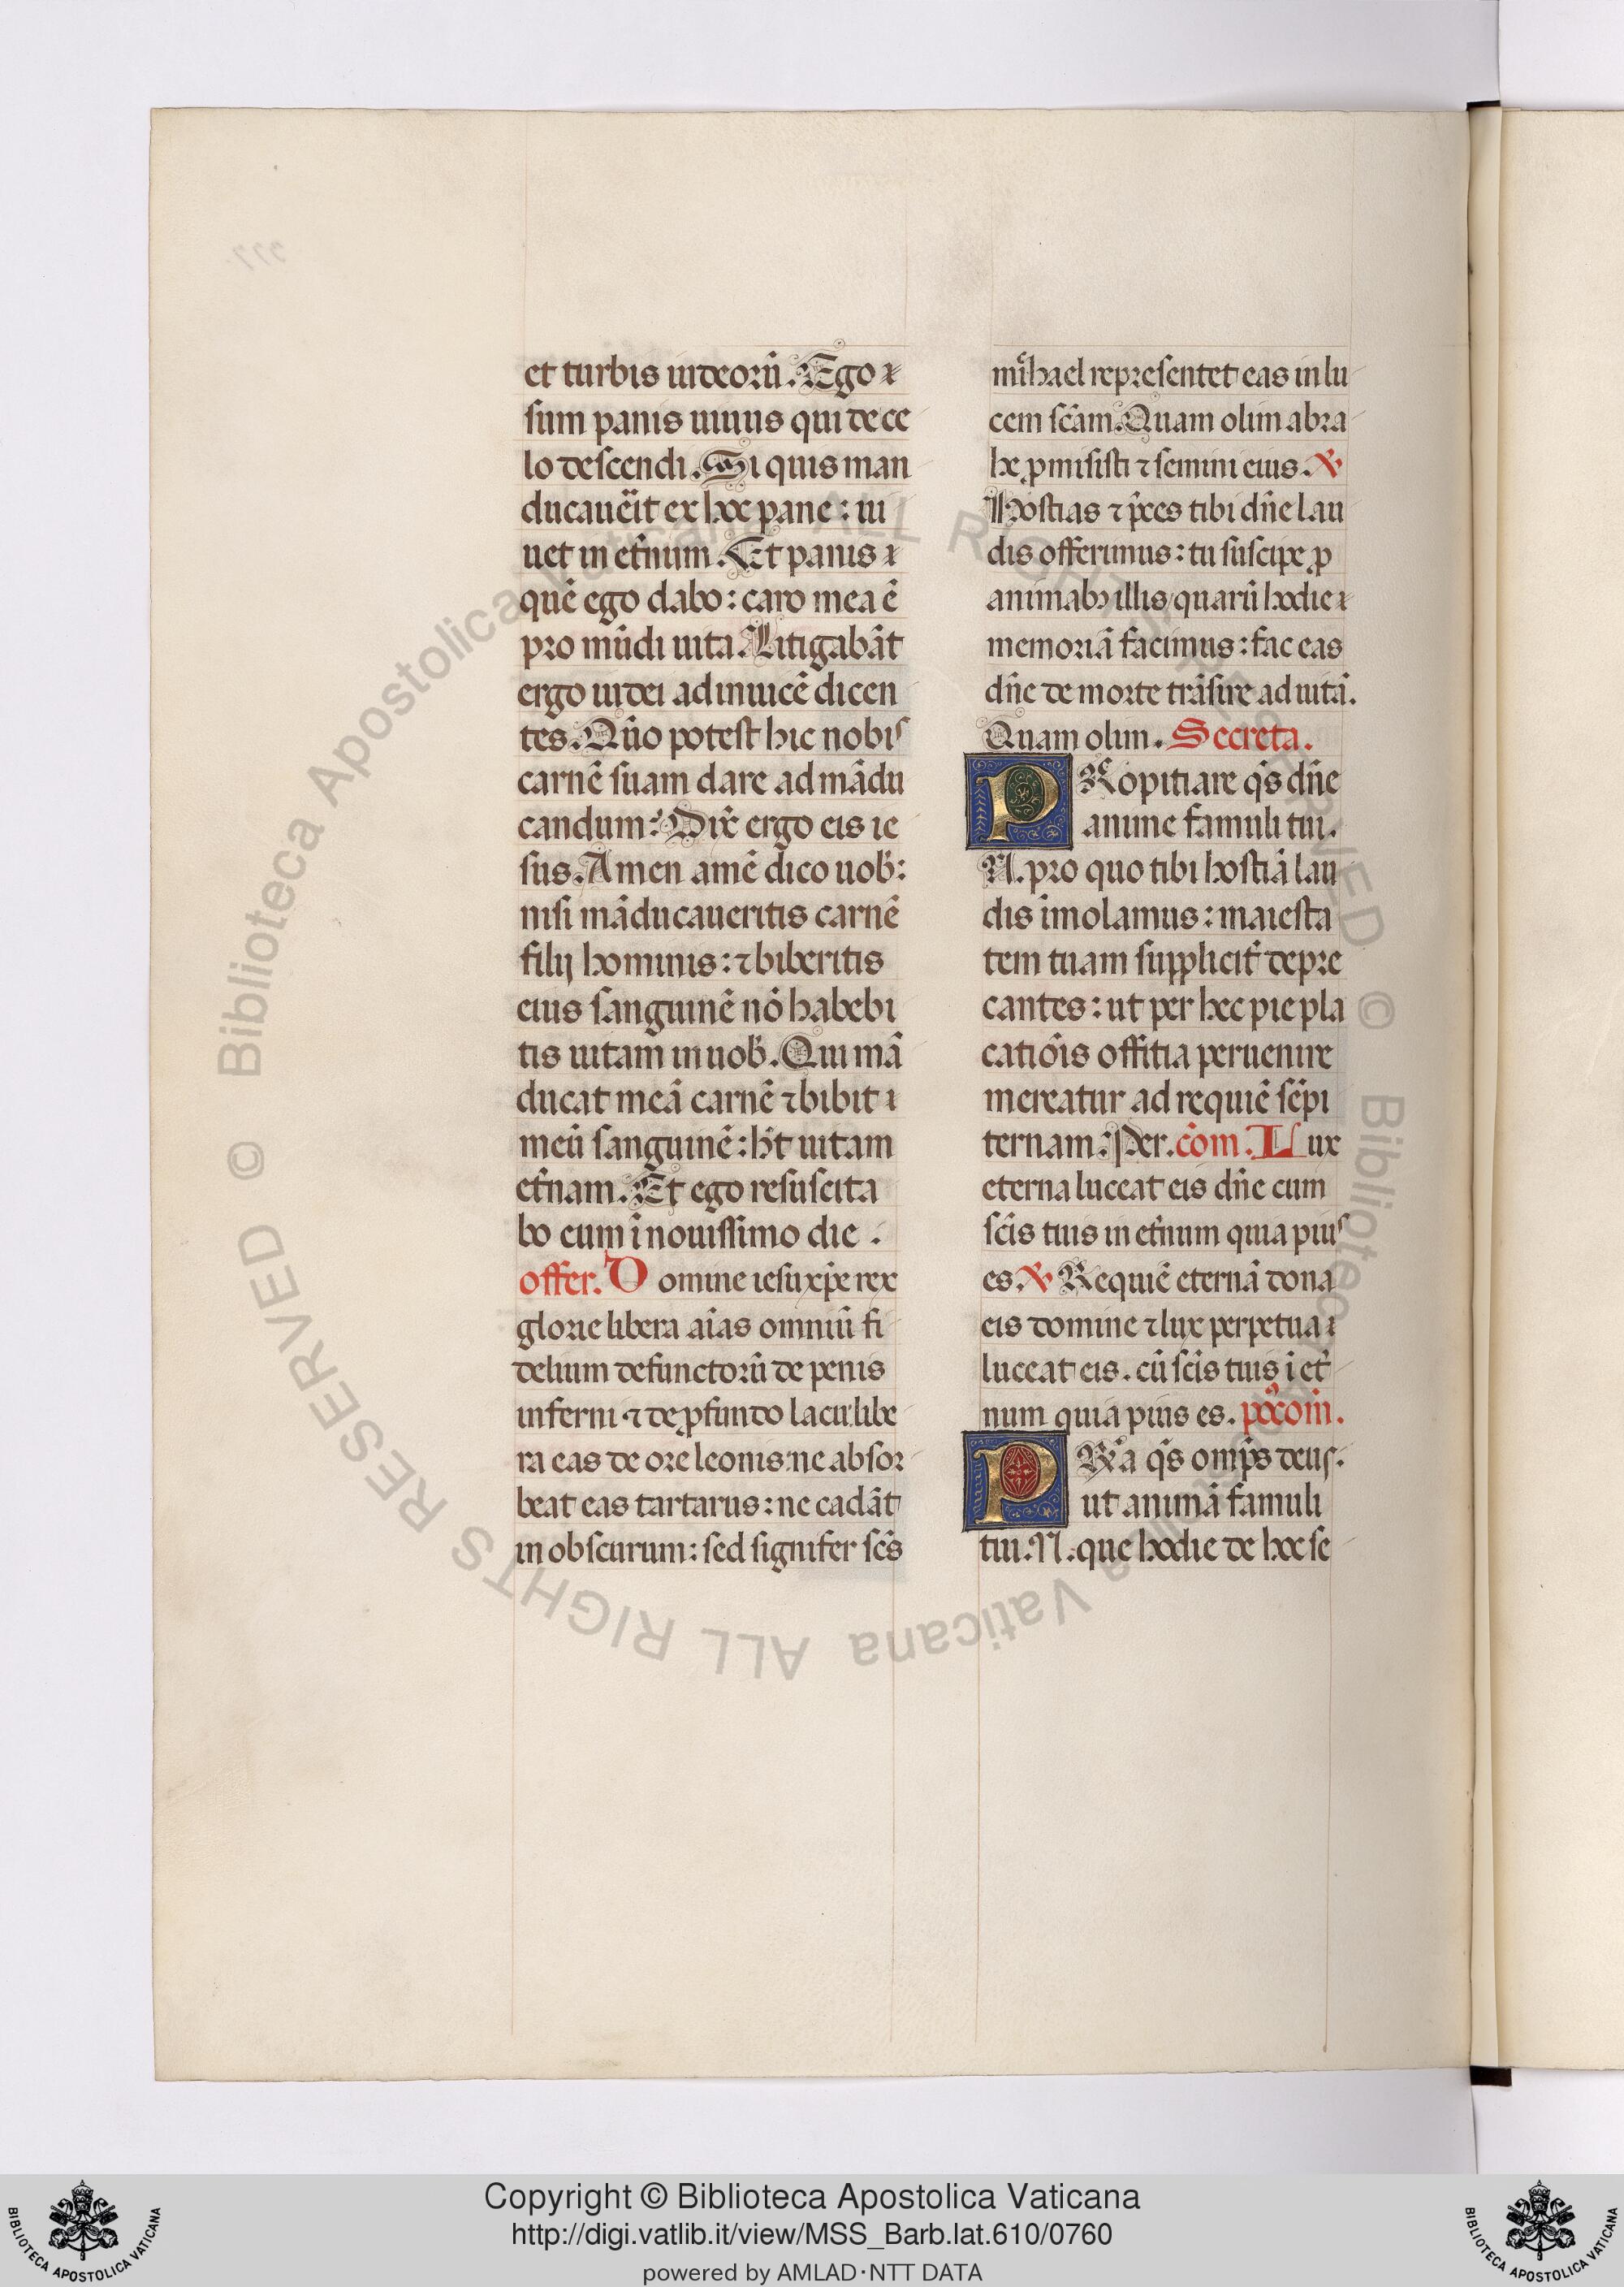 et turbis iudeorū. Ego
sum panis uiuus qui de ce
lo descendi. Si quis man
ducauēit ex hoc pane: ui
uet in et̄num. Et panis
quē ego dabo: caro mea ē
pro mūdi uita. Litigabāt
ergo iudei adinuicē dicen
tes. Quō potest hic nobis
carnē suam dare ad mādu
candum: Dix̄ ergo eis ie
sus. Amen amē dico uob̄:
nisi māducaueritis carnē
filij hominis: ⁊ biberitis
eius sanguinē nō habebi
tis uitam in uob̄. Qui mā
ducat meā carnē ⁊ bibit
meū sanguinē: h̄t uitam
et̄nam. Et ego resuscita
bo eum ī nouissimo die.
offer. Domine iesu xp̄e rex
glorie libera aīas omniū fi
delium defunctorū de penis
inferni ⁊ de ꝓfundo lacu: libe
ra eas de ore leonis: ne absor
beat eas tartarus: ne cadāt
in obscurum: sed signifer sc̄s
michael representet eas in lu
cem sc̄am. Quam olim abra
he ꝓmisisti ⁊ semini eius. ℣
Hostias ⁊ p̄ces tibi dn̄e lau
dis offerimus: tu suscipe ꝓ
animabꝫ illis, quarū hodie
memoriā facimus: fac eas
dn̄e de morte trāsire ad uitā.
Quam olim. Secreta.
PRopitiare q̄s dn̄e
anime famuli tui.
N. pro quo tibi hostiā lau
dis īmolamus: maiesta
tem tuam supplicit̄ depre
cantes: ut per hec pie pla
catiōis offitia peruenire
mereatur ad requiē sēpi
ternam. Per. cōm. Lux
eterna luceat eis dn̄e cum
sc̄is tuis in et̄num quia pius
es. ℣ Requiē eternā dona
eis domine ⁊ lux perpetua
luceat eis. cū sc̄is tuis ī et̄
num quia pius es. pꝰcōm.
PRēa q̄s omp̄s deus.
ut animā famuli
tui. N. que hodie de hoc se
Copyright © Biblioteca Apostolica Vaticana
http://digi.vatlib.it/view/MSS_Barb.lat.610/0760
powered by AMLAD·NTT DATA
BIBLIOTECA APOSTOLICA VATICANA
BIBLIOTECA APOSTOLICA VATICANA
© Biblioteca Apostolica Vaticana ALL RIGHTS RESERVED © Biblioteca Apostolica Vaticana ALL RIGHTS RESERVED